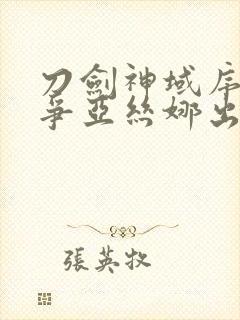 刀劍神域序
爭亞絲娜出
張英牧